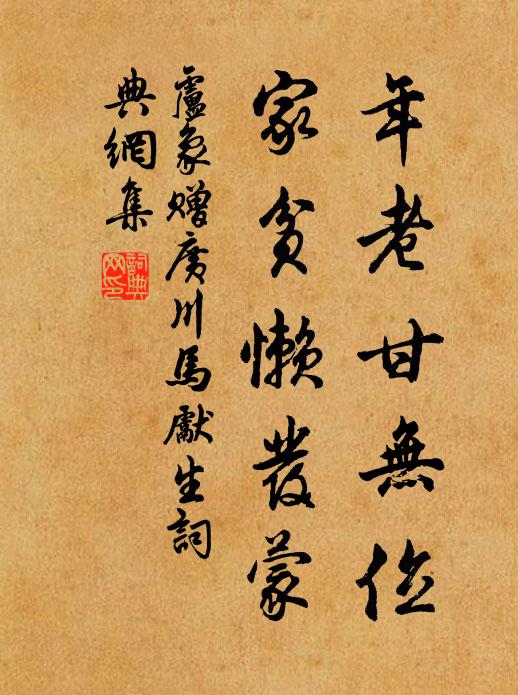 年老甘無位
家貧懶發蒙
盧象贈廣川馬獻生詞
典網集
詞典
网印